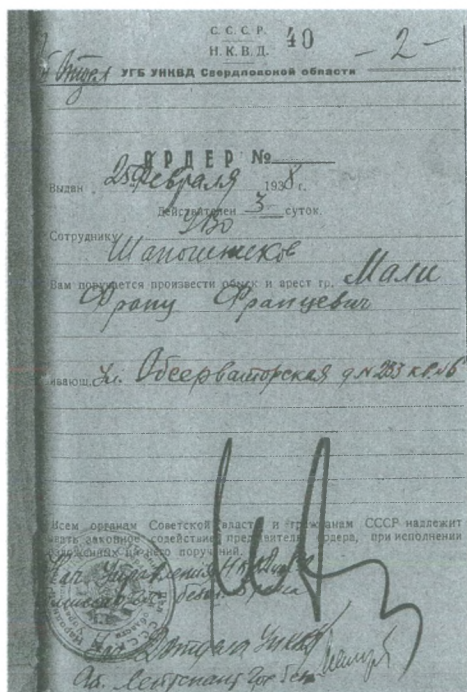 С. С. С. Р. 40
Н. К. В. Д. – 2 –
Отдел УГБ УНКВД Свердловской области
ОРДЕР №
Выдан „25" февраля 1938 г.
Действителен 3 суток.
Сотруднику УВО
Шапошников
Вам поручается произвести обыск и арест гр. Мали
Франц Францевич
ивающ. ул. Обсерваторская д № 283 кв. №6
Всем органам Советской власти и гражданам СССР надлежит
зать законное содействие предъявителю ордера, при исполнении
возложенных на него поручений.
Нач Управления НКВД
Нач Отдела УНКВД
Лейтенант Гос Без